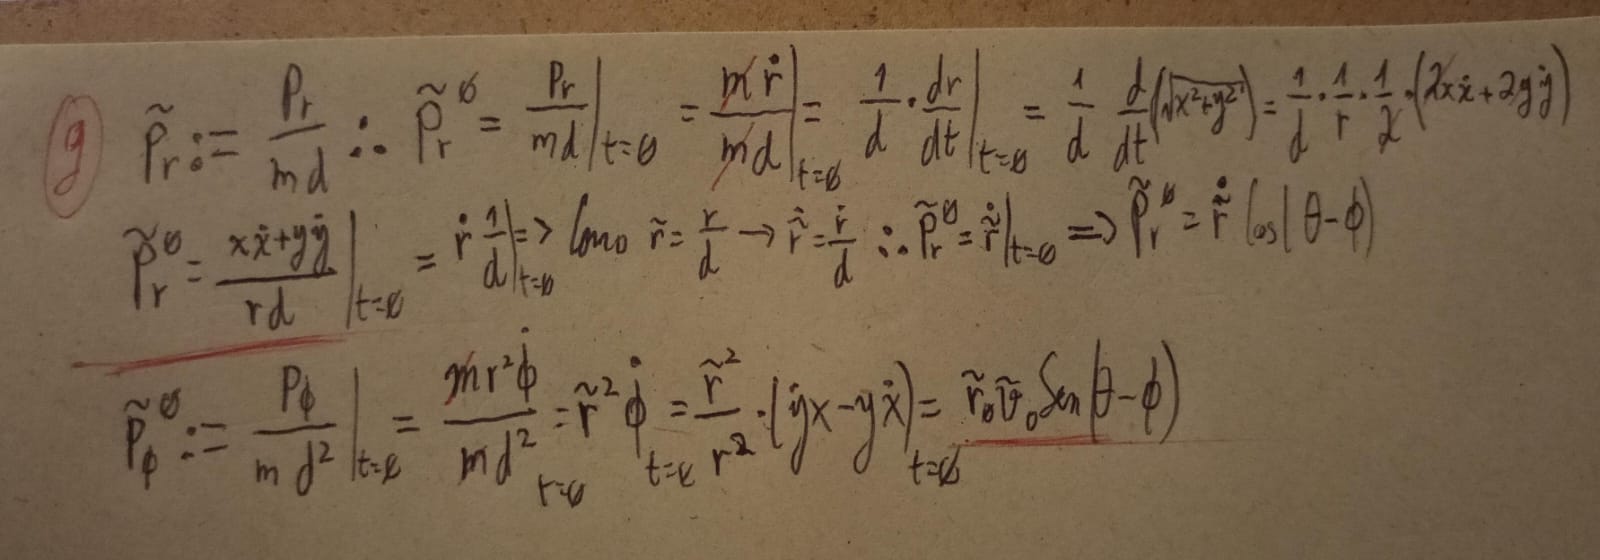 g) p̃_r := p_r/(md) ∴ p̃_r^0 = p_r/(md)|_{t=0} = mṙ/(md)|_{t=0} = 1/d · dr/dt|_{t=0} = 1/d d/dt(√(x²+y²)) = 1/d · 1/r · 1/2 · (2xẋ + 2yẏ)
p̃_r^0 = (xẋ + yẏ)/(rd)|_{t=0} = ṙ 1/d|_{t=0} => Como r̃ = r/d → r̃̇ = ṙ/d ∴ p̃_r^0 = r̃̇|_{t=0} => p̃_r^0 = r̃̇ Cos(θ-ϕ)
p̃_ϕ^0 := p_ϕ/(md²)|_{t=0} = mr²ϕ̇/(md²)_{t=0} = r̃²ϕ̇_{t=0} = r̃²/r² · (ẏx - yẋ)_{t=0} = r̃_0 ṽ_0 Sen(θ-ϕ)